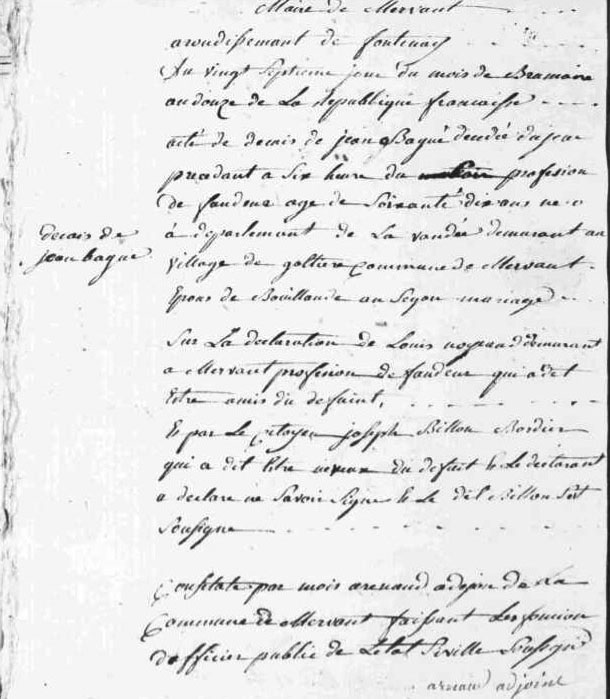 Maire de Mervant
arondissemant de fontenay
Du vingt septieme jour du mois de Brumaire
an douze de La republique francaisse
acte de decais de jean Bagué décédé dujour
precedant a Six heure du profesion
de fandeur age de Soixante dix ans ne
à departemant de La vandée demurant au
village de goltiere Commune de Mervant
Epous de Bouillaude au Segon mariage
decais de
jean bague
Sur La declaration de Louis demurant
a Mervant profesion de fandeur qui a dit
Etre amis du defunt,
Et par Le Citoyen joseph Billon Bordier
qui a dit Etre neveux du defunt et Le declarant
a declare ne Savoir Signe et Le dit Billon Sest
Sousigne
Constate par mois arenaud adjoin de La
Commune de Mervant faissant Les foncion
dofficier public de Letat Seville Sousigné
arnaud adjoint